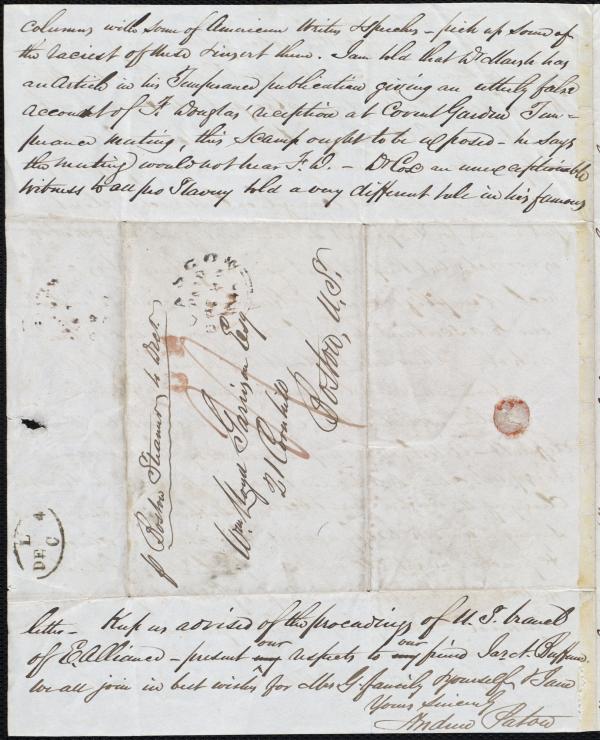 columns with some of American Writers Speeches - pick up some of
the raciest of these & insert them. I am told that Dr. Marsh has
an article in his Temperance publication giving an utterly false
account of F. Douglas' reception at Covent Garden Tem-
perance meeting, this Scamp ought to be exposed - he says
the meeting would not hear F. D. - Dr Cox an unexceptionable
witness to all pro Slavery told a very different tale in his famous
GLASGOW
PAID
p Boston Steamer 4 Dec.
Wm. Lloyd Garrison Esq
21 Cornhill
Boston, U.S.
L
DEC 4
letter - Keep us advised of the proceedings of U.S. branch
of E. Alliance - present our respects to our friend Jas. N. Buffum.
we all join in best wishes for Mrs G. family & yourself & I am
Yours Sincerely
Andrew Paton